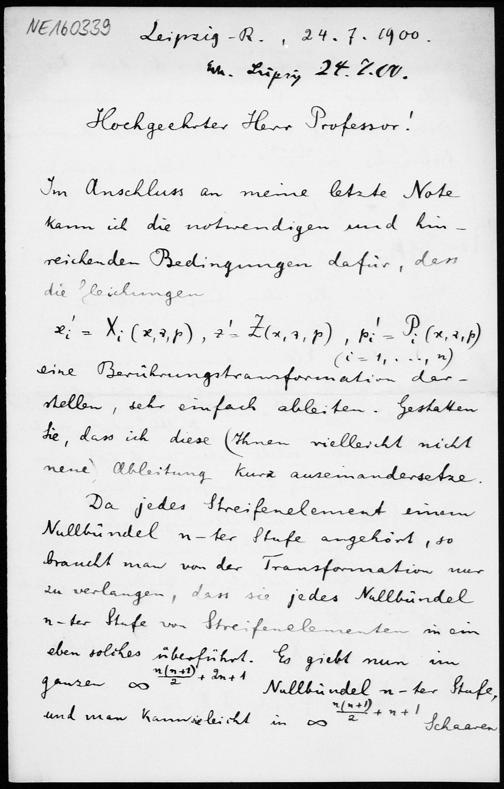 NE160339
Leipzig-R., 24.7.1900.
Erh. Leipzig 24.7.00.
Hochgeehrter Herr Professor!
Im Anschluss an meine letzte Note
kann ich die notwendigen und hin-
reichenden Bedingungen dafür, dass
die Gleichungen
x_i' = X_i (x,z,p), z' = Z(x,z,p), p_i' = P_i (x,z,p)
(i = 1, ..., n)
eine Berührungstransformation dar-
stellen, sehr einfach ableiten. Gestatten
Sie, dass ich diese (Ihnen vielleicht nicht
neue) Ableitung kurz auseinandersetze.
Da jedes Streifenelement einem
Nullbündel n-ter Stufe angehört, so
braucht man von der Transformation nur
zu verlangen, dass sie jedes Nullbündel
n-ter Stufe von Streifenelementen in ein
eben solches überführt. Es giebt nun im
ganzen ∞^{n(n+1)/2 + 2n+1} Nullbündel n-ter Stufe,
und man kann sie leicht in ∞^{n(n+1)/2 + n+1} Schaaren